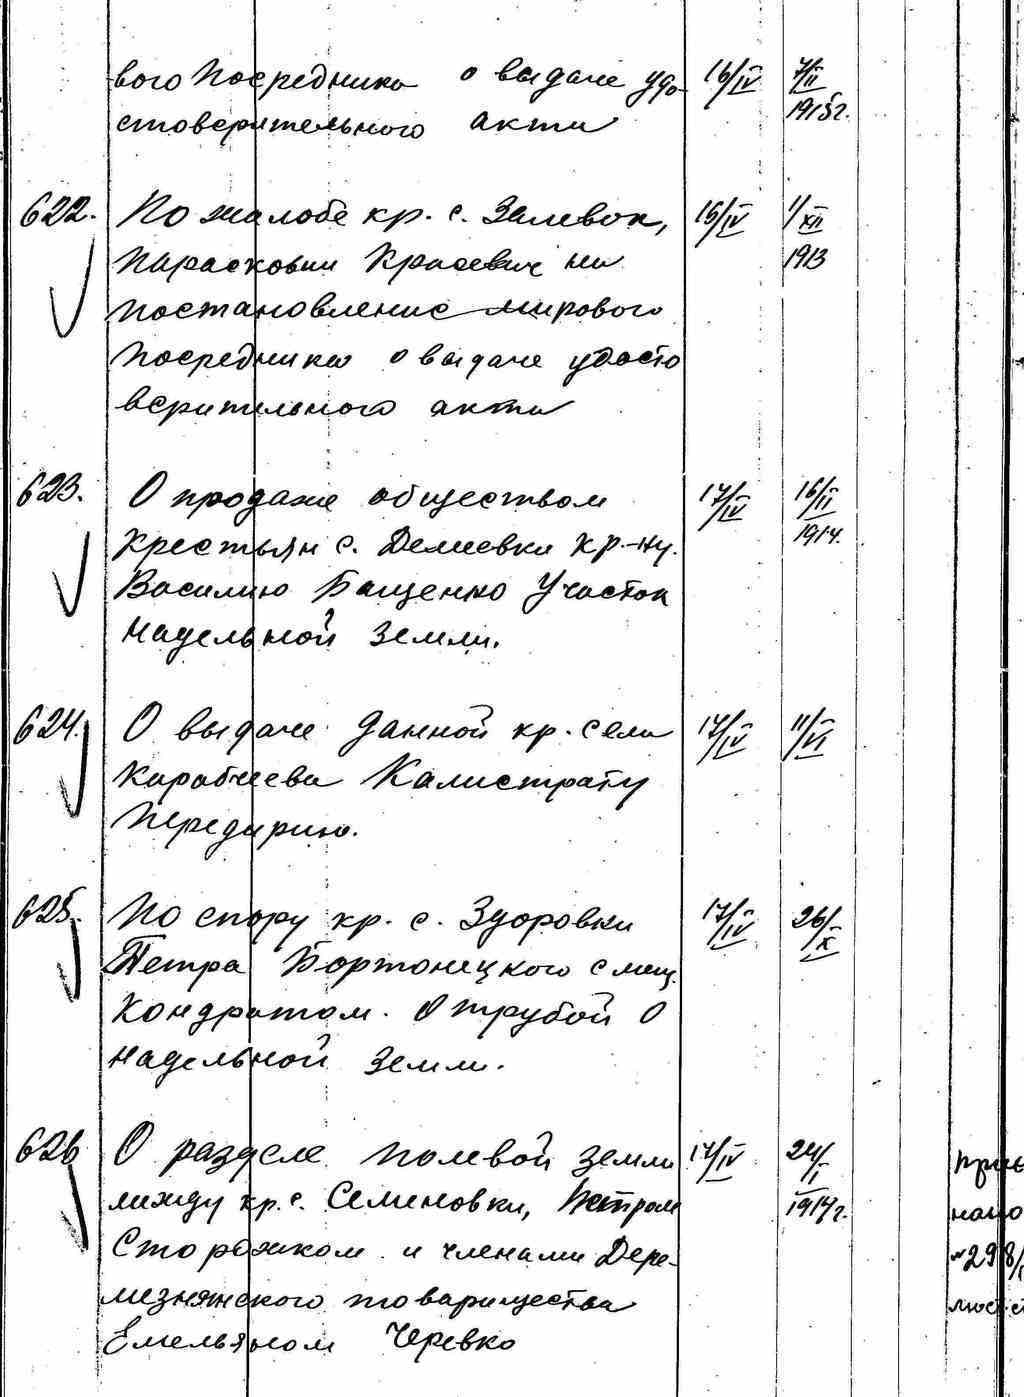 вого Посредника о выдаче удо- 16/IV 7/II
стоверительного акта 1915г.
622. По жалобе кр. с. Залевок, 16/IV 1/XII
Парасковии Красевич на 1913
постановление мирового
посредника о выдаче удосто
верительного акта
623. О продаже обществом 17/IV 16/II
крестьян с. Демиевки кр-ну. 1914.
Василию Бащенко участок
надельной земли.
624. О выдаче данной кр. села 17/IV 11/VI
Карабчеева Калистрату
Передирию.
625. По спору кр. с. Здоровки 17/IV 26/X
Петра Бортонецкого с мещ.
Кондратом. Отрубой о
надельной земли.
626 О разделе полевой земли 17/IV 24/I
между кр. с. Семеновки, Петром 1917г.
Сторожком и членами Дере-
мезнянского товарищества
Емельяном Черевко